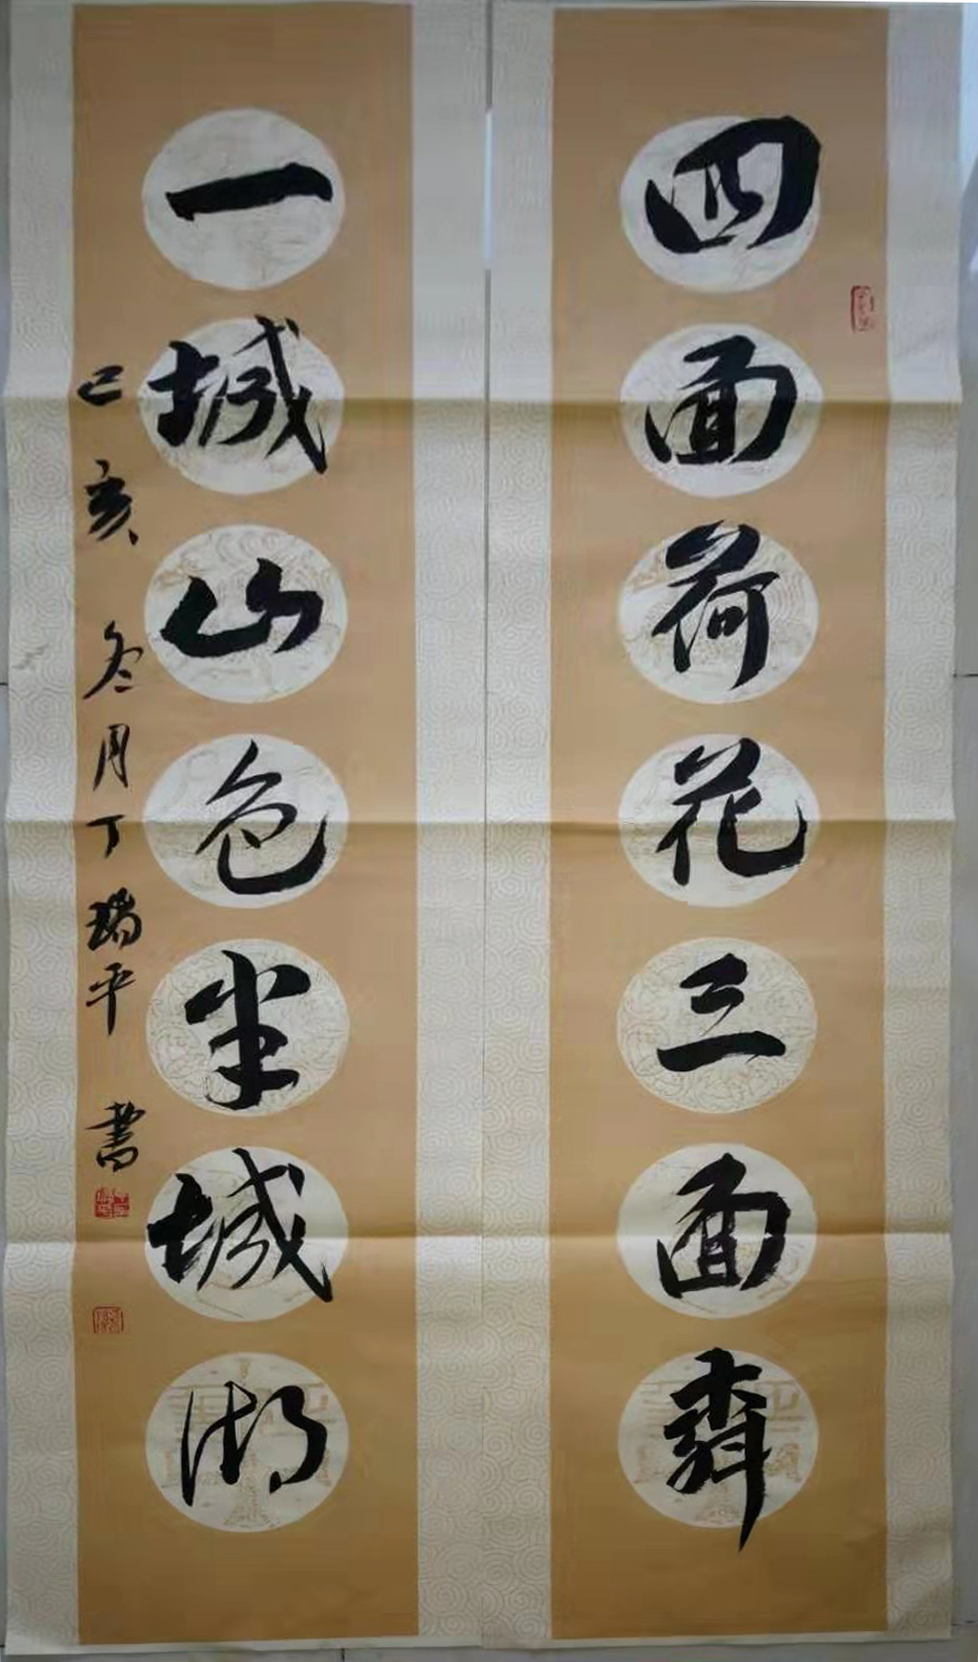 四面荷花三面
一城山色半城湖
己亥 冬月丁瑞平 書